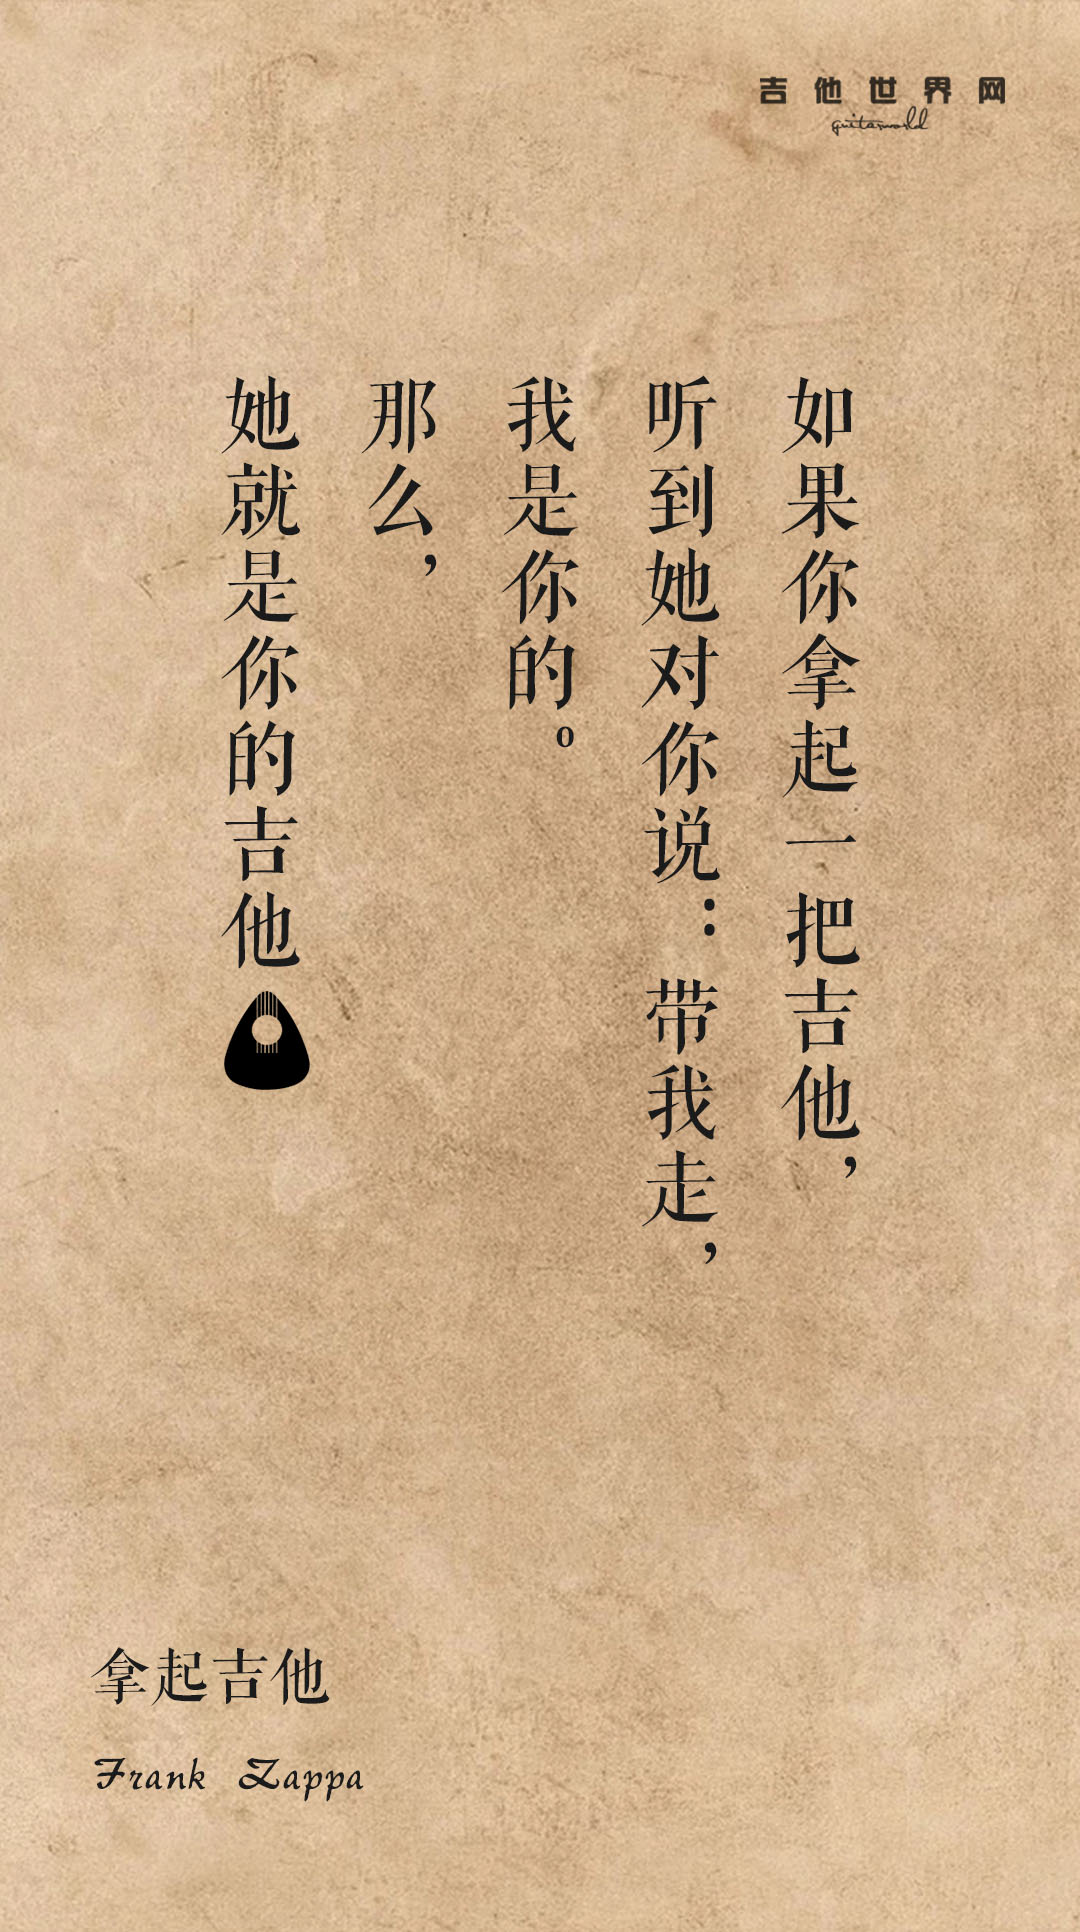 吉他世界网
guitarworld
如果你拿起一把吉他，
听到她对你说：带我走，
我是你的。
那么，
她就是你的吉他
拿起吉他
Frank Zappa